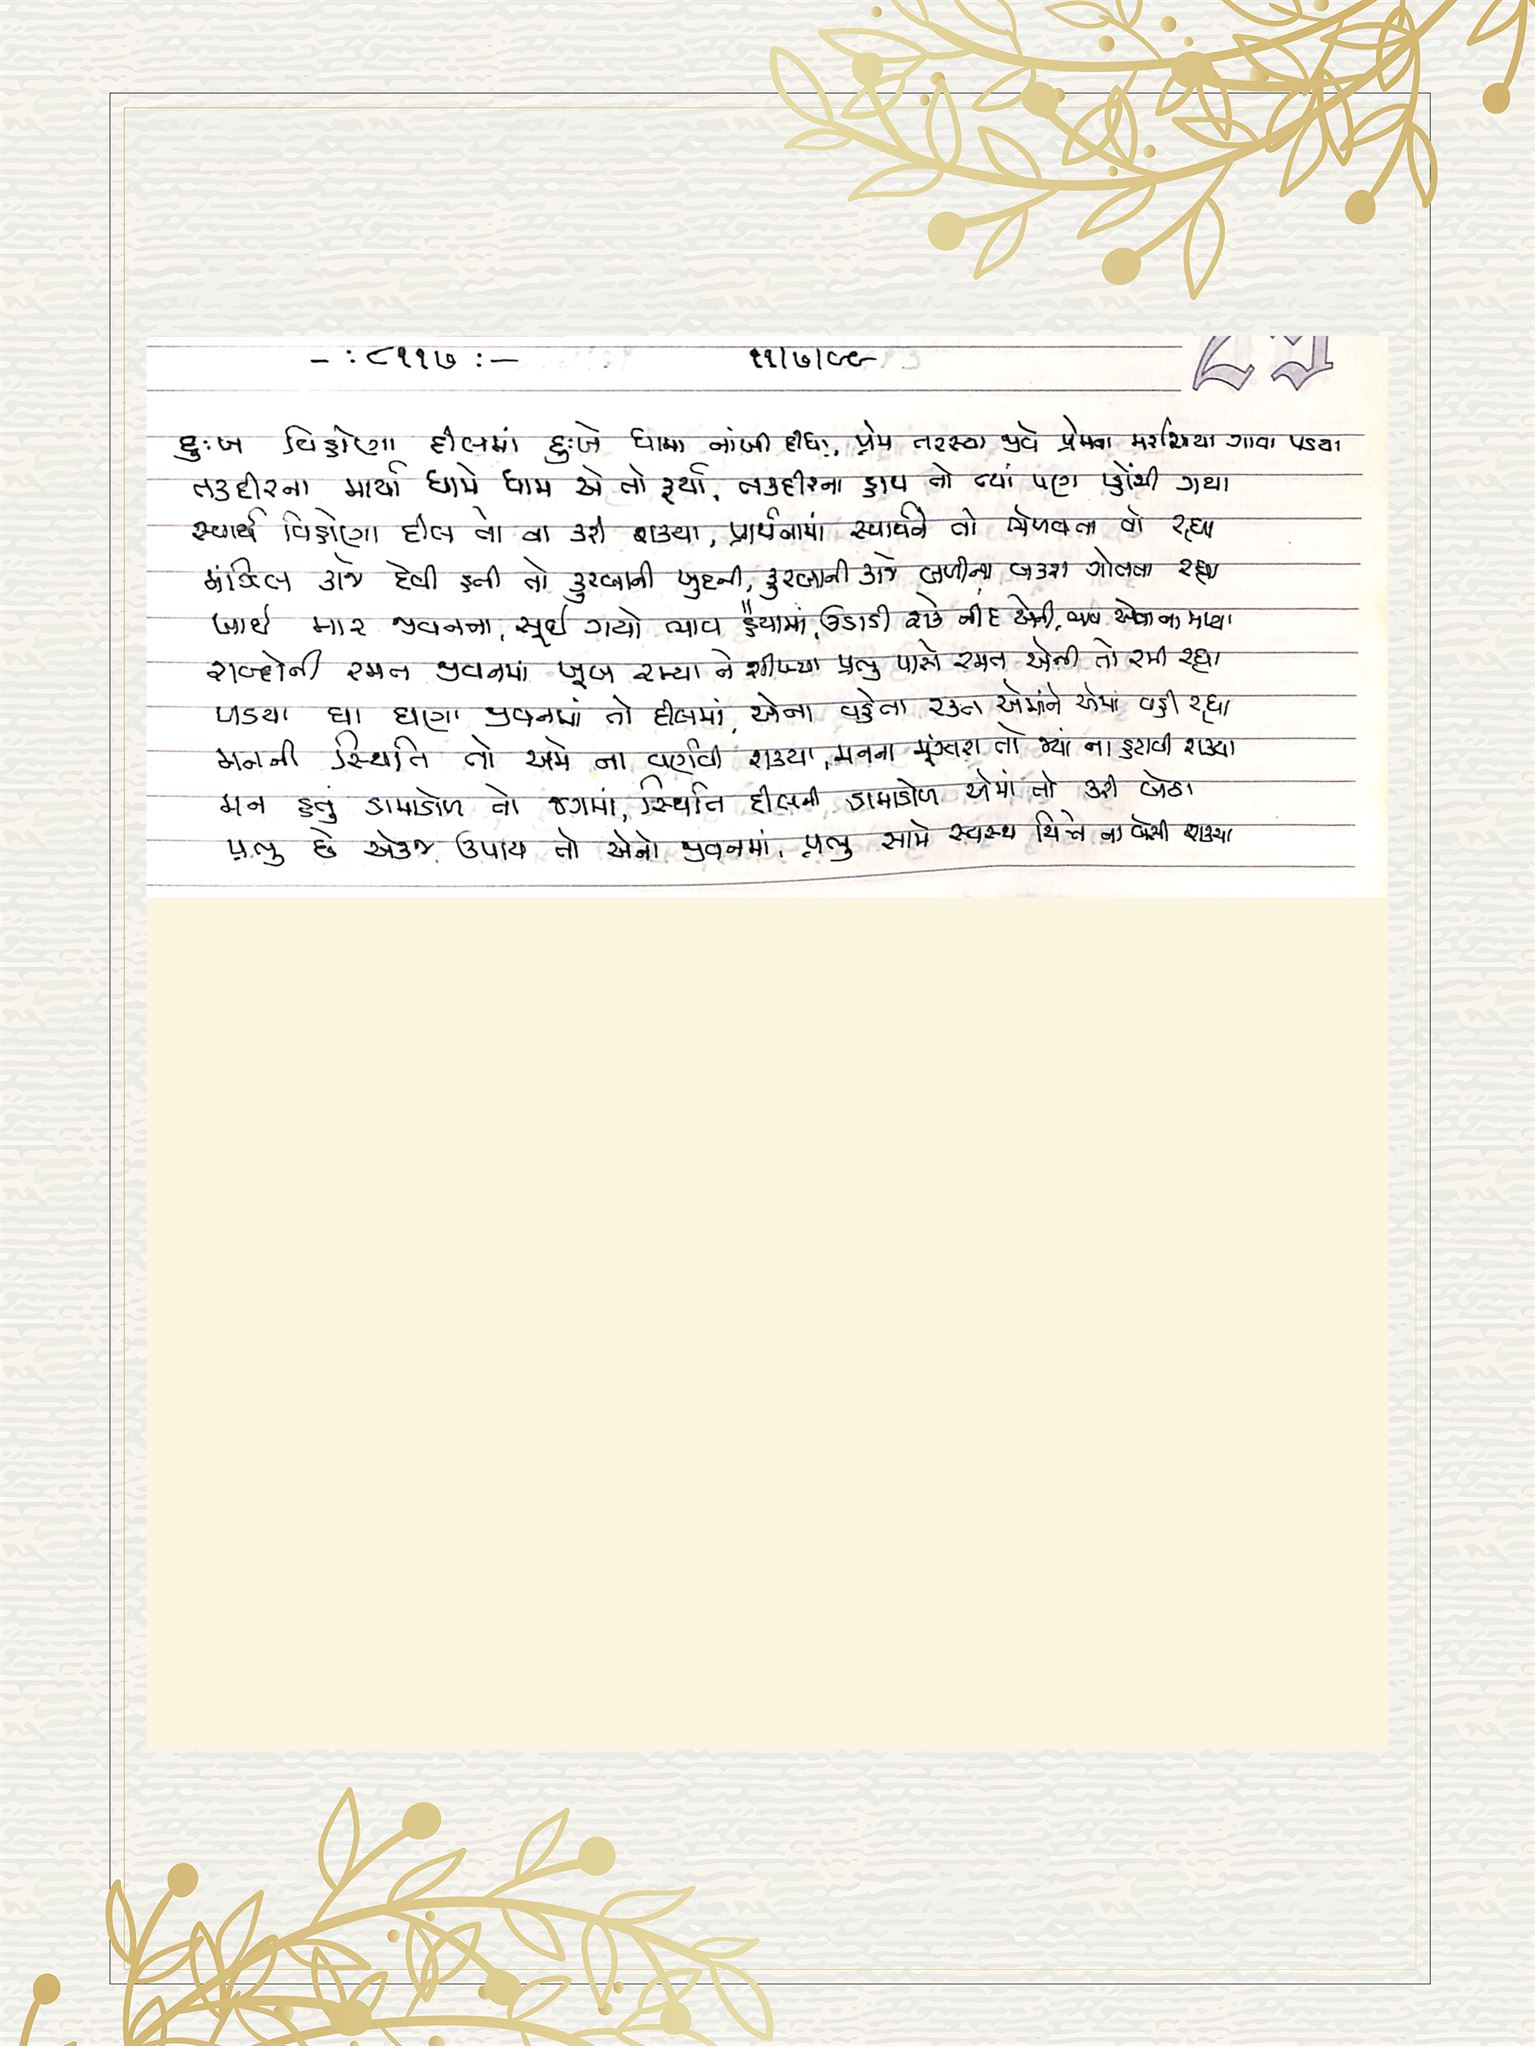 - : ૮૧૧૭ : -
૧૧/૭/૯૯
દુઃખ વિહોણા દીલમાં દુઃખે ધામા નાંખી દીધા, પ્રેમ તરસ્યા જીવે પ્રેમના મરશિયા ગાવા પડયા
તકદીરના માર્યા ધામે ધામ એ તો ફર્યા, તકદીરના હાથ તો ત્યાં પણ પ્હોંચી ગયા
સ્વાર્થ વિહોણા દીલ તો ના કરી શક્યા, પ્રાર્થનામાં સ્વાર્થને તો ભેળવતા તો રહ્યા
મંઝિલ કાજે દેવી હતી તો કુરબાની ખુદની, કુરબાની કાજે બળીના બકરા ગોતતા રહ્યા
ખાઈ માર જીવનના, સૂઈ ગયો ભાવ હૈયામાં, ઉડાડી શકે નીંદ એની, ભાવ એવા ના મળ્યા
શબ્દોની રમત જીવનમાં ખૂબ રમ્યા ને શીખ્યા પ્રભુ પાસે રમત એની તો રમી રહ્યા
પડયા ઘા ઘણા જીવનમાં તો દીલમાં, એના વહેતા રક્ત એમાંને એમાં વહી રહ્યા
મનની સ્થિતિ તો અમે ના વર્ણવી શક્યા, મનના મૂંઝારા તો જ્યાં ના હટાવી શક્યા
મન હતું ડામાડોળ તો જગમાં, સ્થિતિ દીલની ડામાડોળ એમાં તો કરી બેઠા
પ્રભુ છે એકજ ઉપાય તો એનો જીવનમાં, પ્રભુ સામે સ્વસ્થ ચિત્તે ના બેસી શક્યા